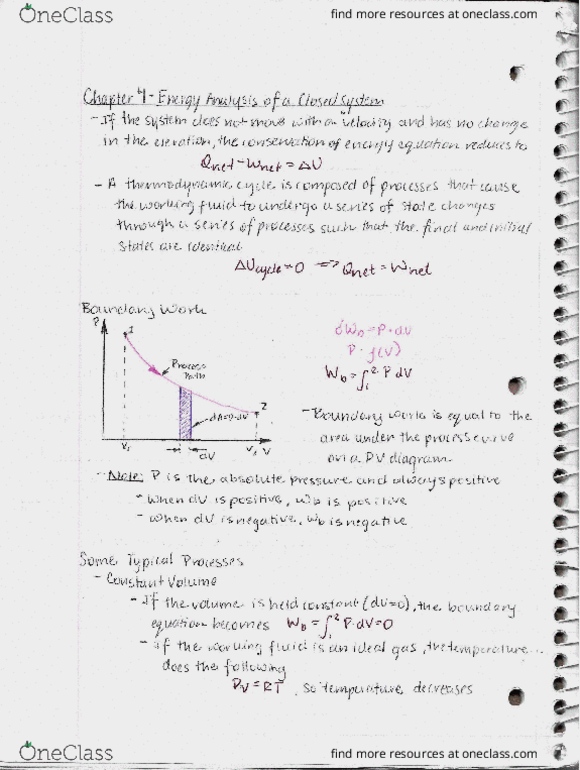 OneClass
find more resources at oneclass.com
Chapter 4 - Energy Analysis of a Closed System
- If the system does not move with a velocity and has no change
in the elevation, the conservation of energy equation reduces to
Qnet - Wnet = ΔU
- A thermodynamic cycle is composed of processes that cause
the working fluid to undergo a series of state changes
through a series of processes such that the final and initial
states are identical
ΔUcycle = 0 => Qnet = Wnet
Boundary Work
P
1
Process
Path
2
dA = P·dV
V₁
dV
V
δWb = P·dV
P·f(V)
Wb = ∫₁² P dV
- Boundary work is equal to the
area under the process curve
on a PV diagram
- Note: P is the absolute pressure and always positive
- When dV is positive, Wb is positive
- When dV is negative, Wb is negative
Some Typical Processes
- Constant Volume
- If the volume is held constant (dV=0), the boundary
equation becomes Wb = ∫₁² P·dV = 0
- If the working fluid is an ideal gas, the temperature...
does the following
PV = RT, so temperature decreases
OneClass
find more resources at oneclass.com